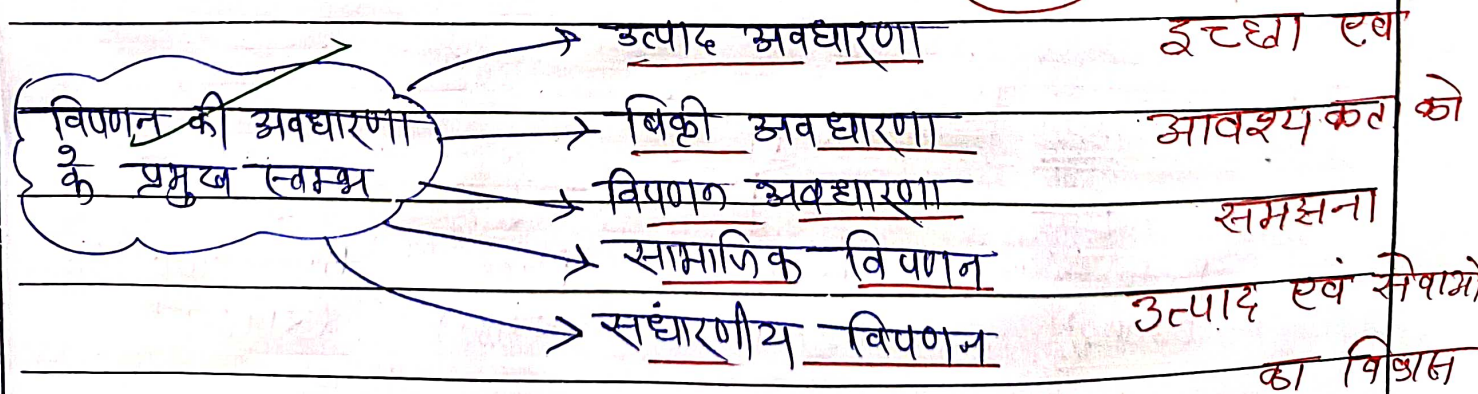 विपणन की अवधारणा
के प्रमुख स्तम्भ
उत्पाद अवधारणा
बिक्री अवधारणा
विपणन अवधारणा
सामाजिक विपणन
संधारणीय विपणन
इच्छा एवं
आवश्यकत को
समझना
उत्पाद एवं सेवाओ
का विकास